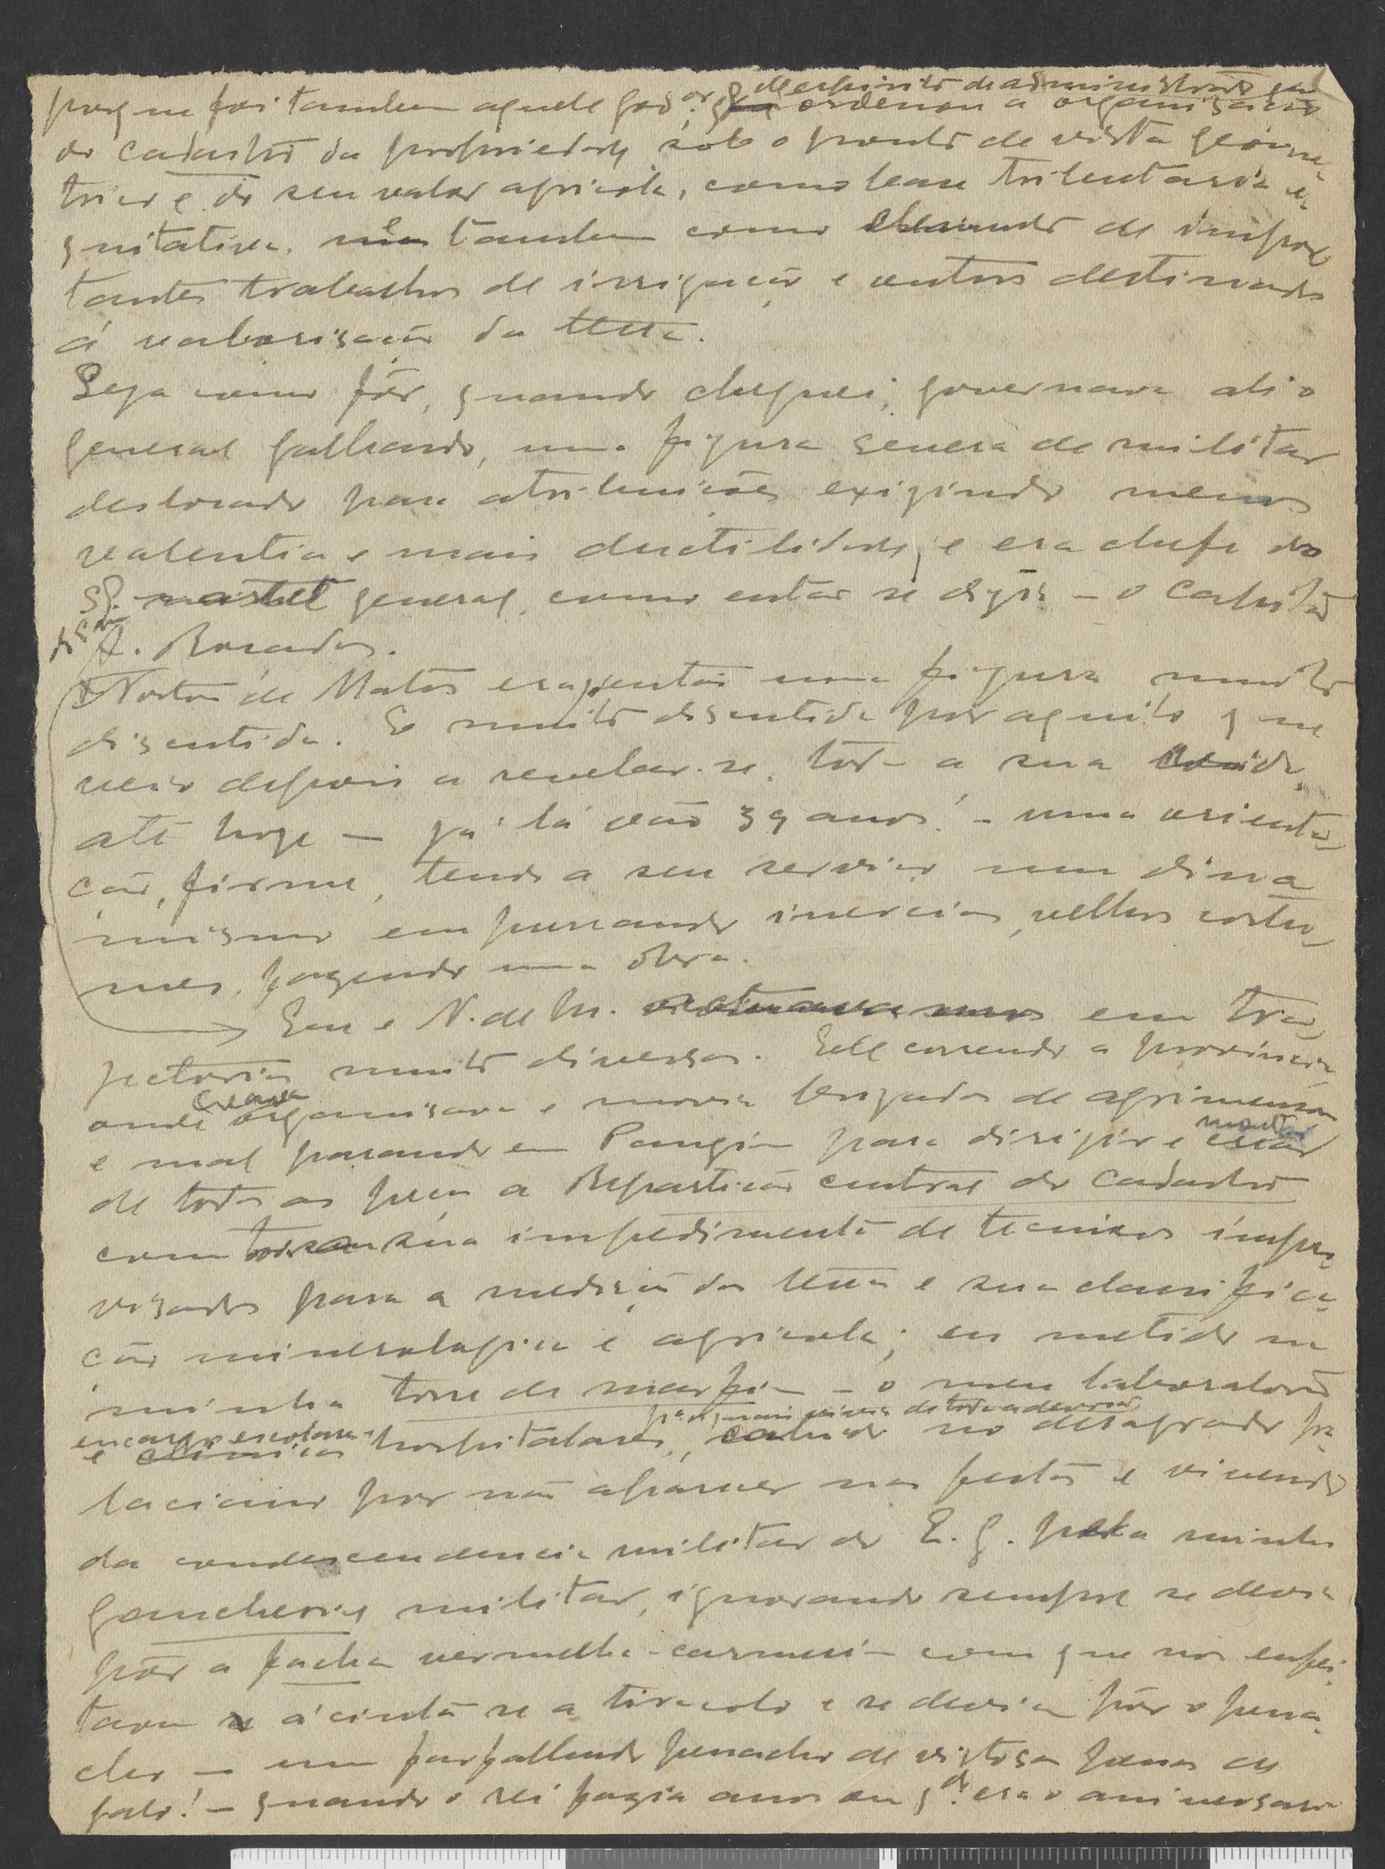 de espirito de administrador que
porque foi tambem aquele gov.or q ordenou a organisação
do cadastro da propriedade sob o ponto de vista geome-
trico e do seu valor agricola, como base tributaria e-
quitativa, tambem como elemento de impor-
tantes trabalhos de irrigação e outros destinados
á valorisação da terra.
Seja como fôr, quando cheguei, governava ali o
general Galhardo, uma figura severa de militar
deslocado para atribuições exigindo menos
valentia e mais ductilidade, e era chefe do
general, como entao se dizia - o Capitão
A. Roçadas.
Norton de Matos era, entao uma figura muito
discutida. E muito discutida por aquilo que
veio depois a revelar-se, toda a sua vida,
até hoje — já lá vão 39 anos! - uma orienta-
ção, firme, tendo a seu serviço um dina-
mismo empurrando inercias, velhos costu-
mes, fazendo uma obra.
Eu e N. de M. em tra-
jectorias muito diversas. Ele correndo a provincia
creava
onde organisava e movia brigadas de agrimensores
montar
e mal parando em Pangim para dirigir e
de todas as peças a Repartição central do Cadastro
com sua impedimenta de tecnicos impro-
visados para a medição da terra e sua classifica-
ção mineralogica e agricola; eu metido na
minha torre de marfim - o meu laboratorio
encargos escolares
e clinicas hospitalares, caindo no desagrado pa-
laciano por não aparecer nas festas e vivendo
da condescendencia militar do E. G. pela minha
gaucherie militar, ignorando sempre se devia
pôr a facha vermelha-carmesim com que nos enfei-
tavam á cinta se a tiracolo e se devia pôr o pena-
cho — um farfalhudo penacho de vistosas penas de
galo! - quando o rei fazia anos ou q.do era o aniversario